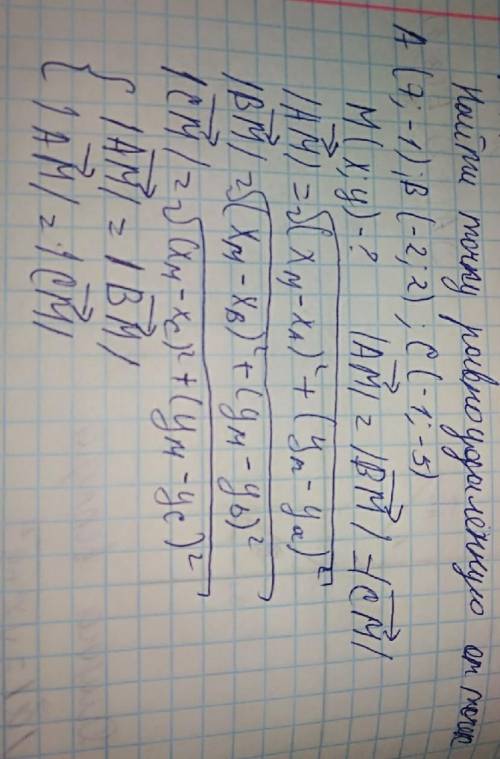 Найти точку равноудаленную от точк
A (7; -1); B (-2; 2); C (-1; -5)
M (x; y) - ? |AM| = |BM| = |CM|
|AM| = √(x_M - x_A)² + (y_M - y_a)²
|BM| = √(x_M - x_B)² + (y_M - y_b)²
|CM| = √(x_M - x_c)² + (y_M - y_c)²
{ |AM| = |BM|
|AM| = |CM|